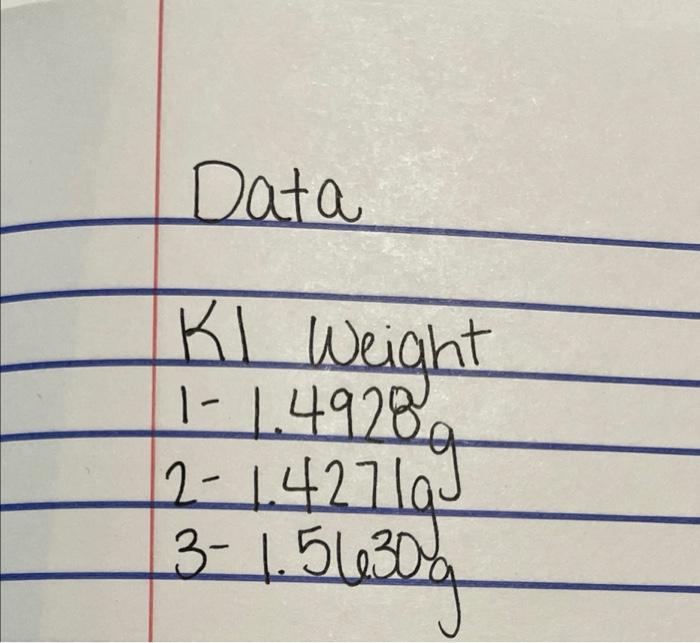 Data
KI Weight
1- 1.4928g
2- 1.4271g
3- 1.5630g